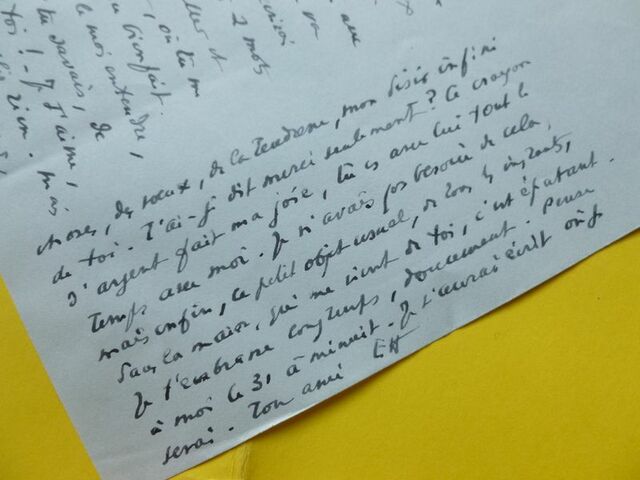 2 mots
où tu m
bienfait.
tu savais, de
le mois entendre,
toi ! - Je t'aime,
rien. mais
choses, des vœux, de la tendresse, mon désir infini
de toi. T'ai-je dit merci seulement ? Ce crayon
d'argent fait ma joie, tu es avec lui tout le
temps avec moi. Je n'avais pas besoin de cela,
mais enfin, ce petit objet usuel, de tous les instants,
dans la main, qui me vient de toi, c'est épatant.
Je t'embrasse longtemps, doucement. Pense
à moi le 31 à minuit. Je t'aurai écrit où je
serai. Ton ami EH